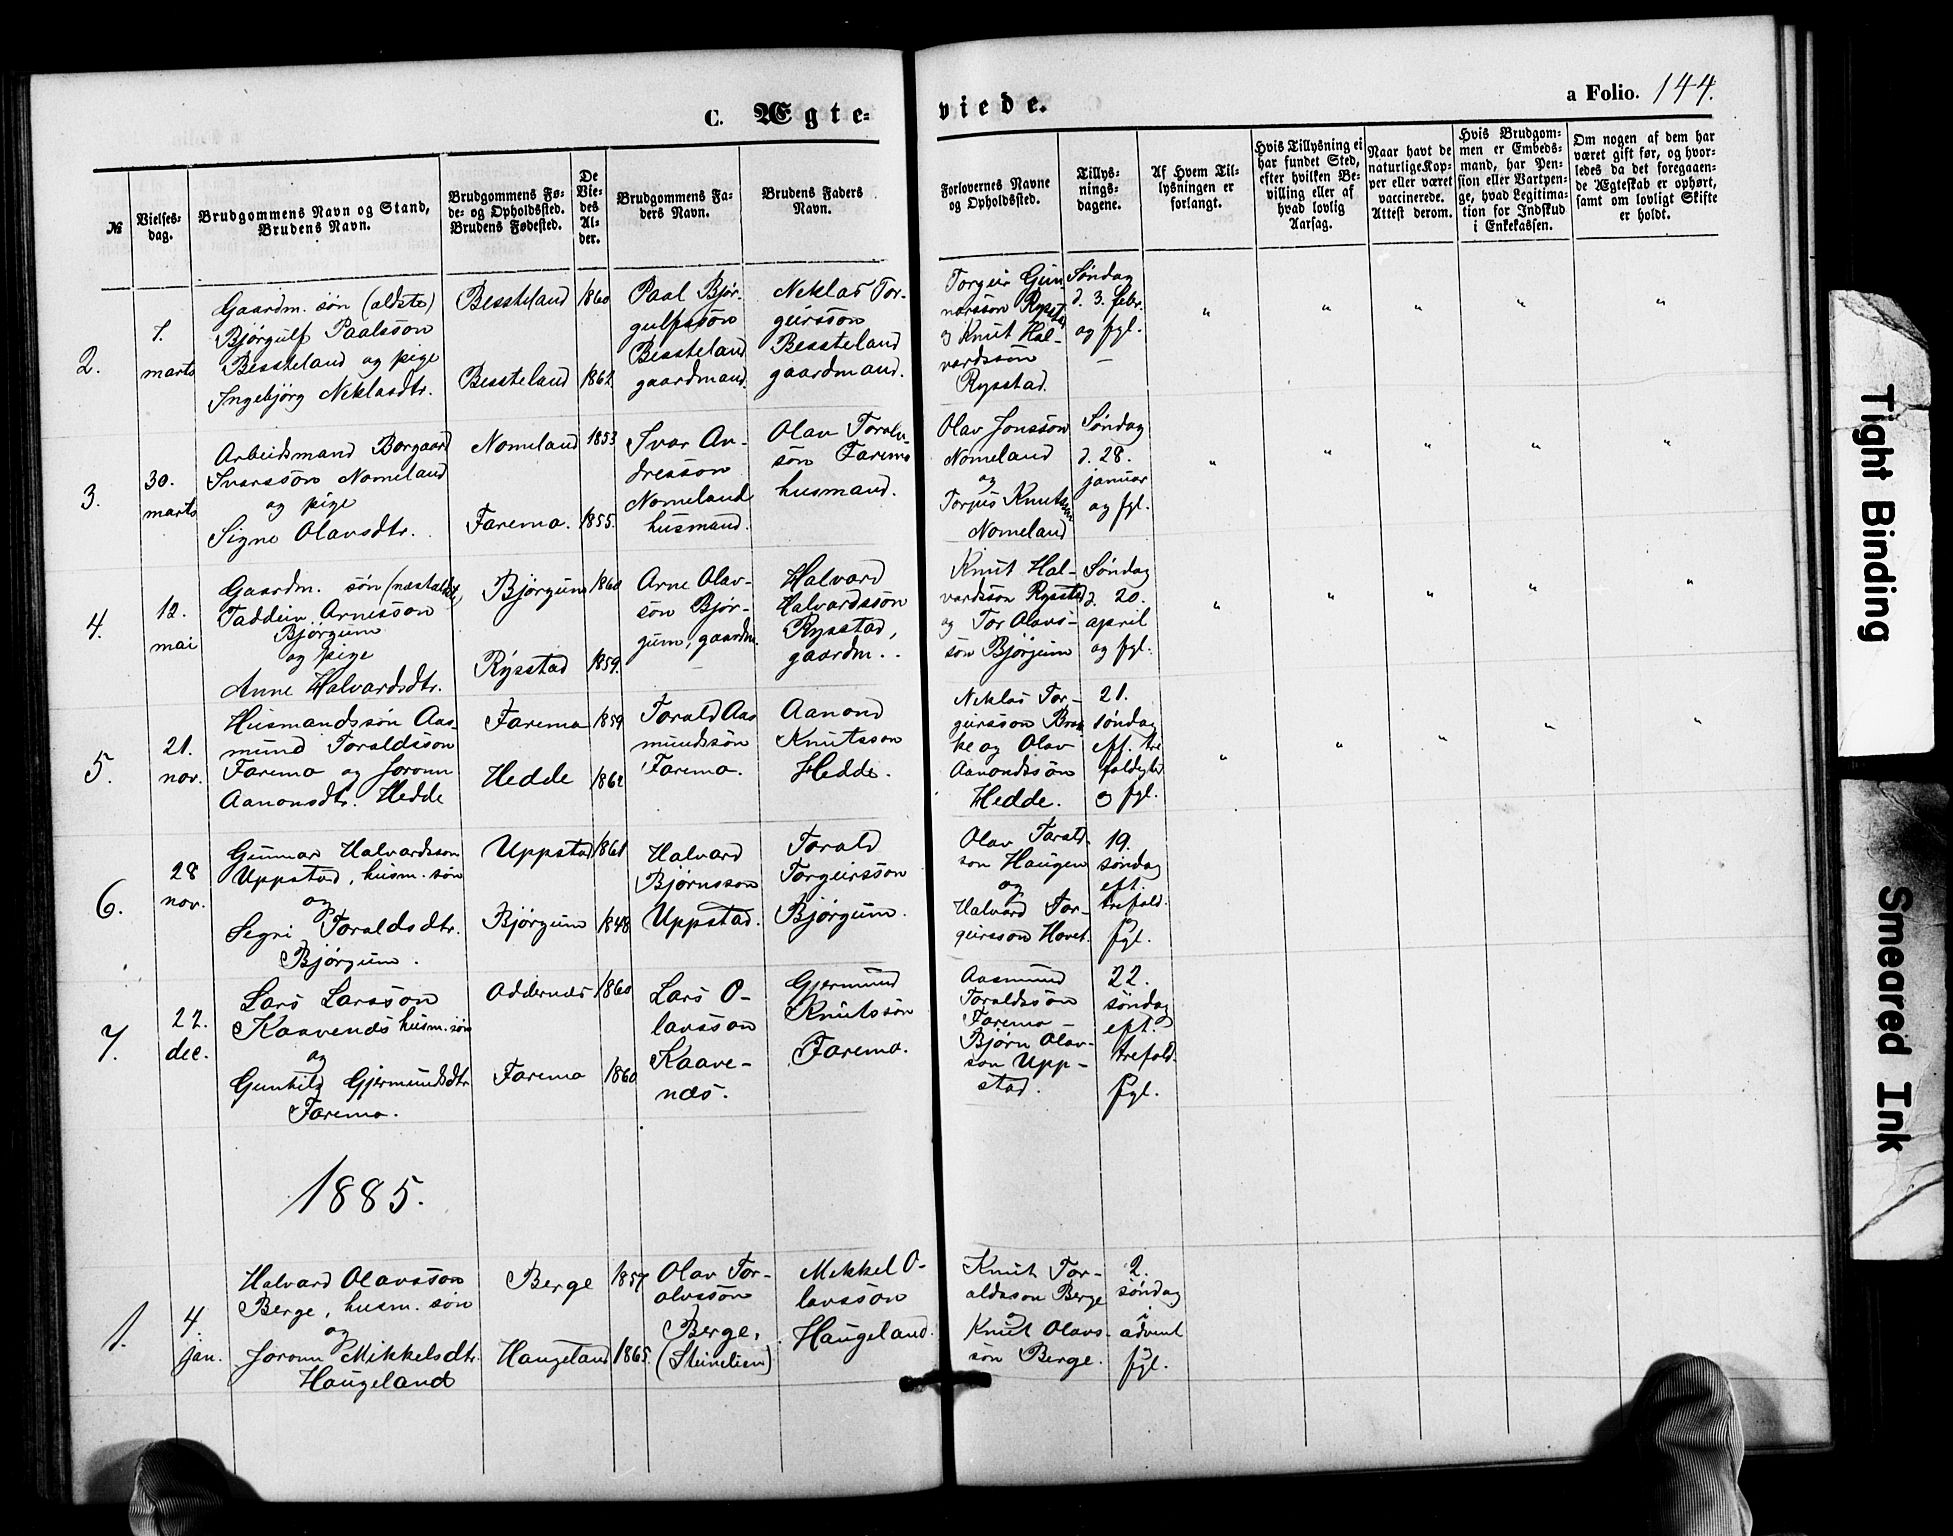 C. Ægteviede.
a Folio. 144.
№
Vielsesdag.
Brudgommens Navn og Stand,
Brudens Navn.
Brudgommens Føde- og Opholdssted.
Brudens Fødested.
De Viedes Alder.
Brudgommens Faders Navn.
Brudens Faders Navn.
Forlovernes Navne og Opholdssted.
Tillysningsdagene.
Af Hvem Tillysningen er forlangt.
Hvis Tillysning ei har fundet Sted, efter hvilken Bevilling eller af hvad lovlig Aarsag.
Naar havt de naturlige Kopper eller været vaccinerede. Attest derom.
Hvis Brudgommen er Embedsmand, har Pension eller Vartpenge, hvad Legitimation for Indskud i Enkekassen.
Om nogen af dem har været gift før, og hvorledes da det foregaaende Ægteskab er ophørt, samt om lovligt Skifte er holdt.
2.
7. marts
Gaardm. søn (ældste)
Bjørgulf Paalsson
Bessteland og pige
Ingebjørg Neklasdtr.
Bessteland 1860
Bessteland 1862
Paal Bjør-
gulfssøn
Bessteland
gaardmand.
Neklas Tor-
geirssøn
Bessteland
gaardmand.
Torgeir Gun-
narsson Rysstad
o Knut Hal-
vardssøn
Rysstad.
Søndag
d. 3. febr.
og fgl.
3.
30. marts
Arbeidsmand Borgaard
Ivarssøn Nomeland
og pige
Signe Olavsdtr.
Nomeland 1853
Farema. 1855.
Ivar An-
dresson
Nomeland
husmand.
Olav Toralv-
søn Farema
husmand.
Olav Jonssøn
Nomeland
og
Torjus Knutsson
Nomeland
Søndag
d. 28.
januar
og fgl.
4.
12. mai
Gaardm. søn (næstældste)
Taddeiv Arnesson
Bjørgum
og pige
Anne Halvardsdtr.
Bjørgum 1860
Rysstad 1859.
Arne Olav-
søn Bjør-
gum, gaardm.
Halvard
Halvardssøn
Rysstad,
gaardm.
Knut Hal-
vardssøn Rysstad
og Tor Olavs-
søn Bjørgum
Søndag
d. 20.
april
og fgl.
5.
21. nov.
Husmandssøn Aas-
mund Toraldsson
Farema og Joronn
Aanonsdtr. Hedde
Farema 1859
Hedde 1862
Torald Aas
mundssøn
Farema.
Aanond
Knutsson
Hedde.
Neklas Tor-
geirsson Brok
ke og Olav
Aanondssøn
Hedde.
21.
søndag
eft. tre
foldighed
o fgl.
6.
28 nov.
Gunnar Halvardsson
Uppstad, husm. søn
og
Segri Toraldsdtr.
Bjørgum.
Uppstad 1861
Bjørgum 1848
Halvard
Bjørnsson
Uppstad.
Torald
Torgeirssøn
Bjørgum.
Olav Torald-
son Haugen
og
Halvard Tor-
geirsson Hovet.
19.
søndag
eft.
trefold.
o
fgl.
7.
22. dec.
Lars Larsson
Kaavenæs husm. søn
og
Gunhild Gjermundsdtr
Farema.
Oddernæs 1860
Farema 1860
Lars O-
lavsson
Kaave-
næs.
Gjermund
Knutssøn
Farema.
Aasmund
Toraldssøn
Farema
Bjørn Olav-
son Upp-
stad.
22.
søndag
eft.
trefold.
o
fgl.
1885.
1.
4. jan.
Halvard Olavsson
Berge, husm. søn
og
Joronn Mikkelsdtr.
Haugeland
Berge 1857
Haugeland 1865.
Olav Tor-
alvssøn
Berge,
(Steinelien)
Mikkel O-
lavssøn
Haugeland.
Knut Tor-
aldsson Berge
o
Knut Olavs-
søn Berge.
2.
søndag
i
advent
o
fgl.
Tight Binding
Smeared Ink